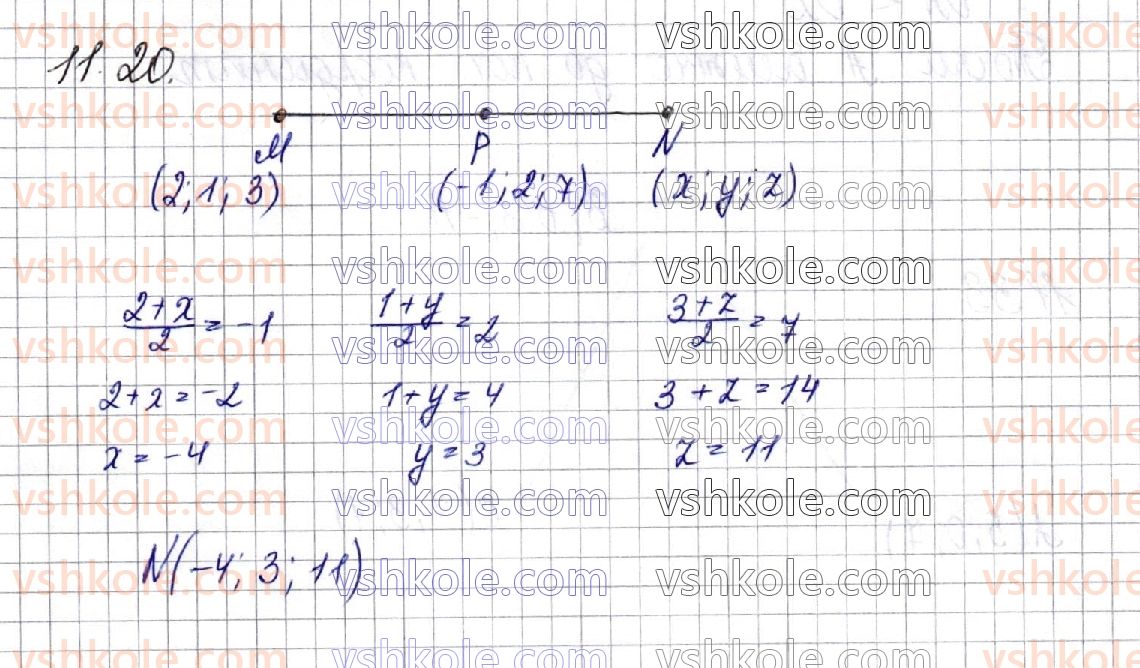 11.20.
M P N
(2; 1; 3) (-1; 2; 7) (x; y; z)
(2+x)/2 = -1 (1+y)/2 = 2 (3+z)/2 = 7
2+x = -2 1+y = 4 3+z = 14
x = -4 y = 3 z = 11
N(-4; 3; 11)
vshkole.com